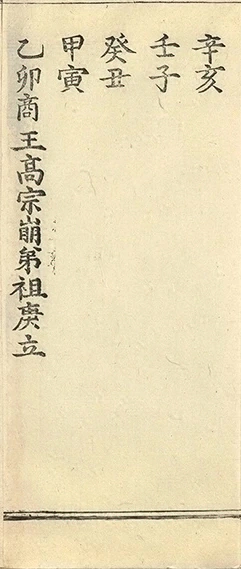 辛亥
壬子
癸丑
甲寅
乙卯商王高宗崩弟祖庚立